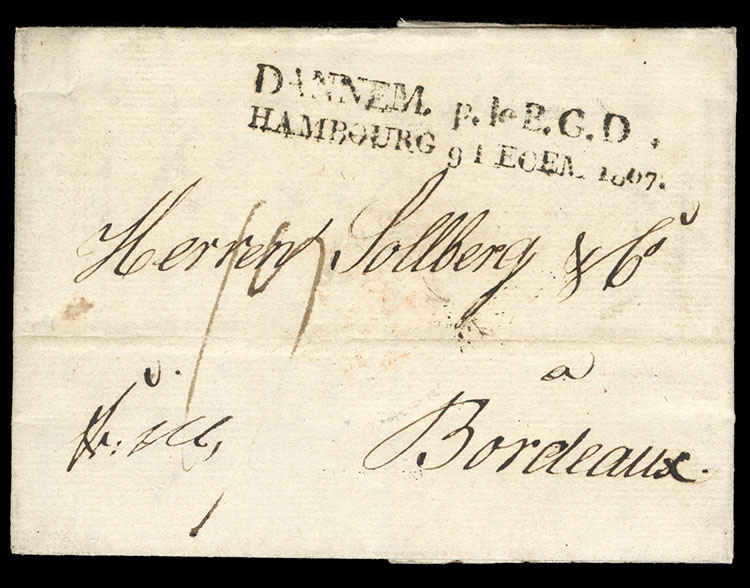 DANNEM. p. le B.G.D.
HAMBOURG 9 DECEM. 1807.
Herren Sollberg & Co
a
Bordeaux.